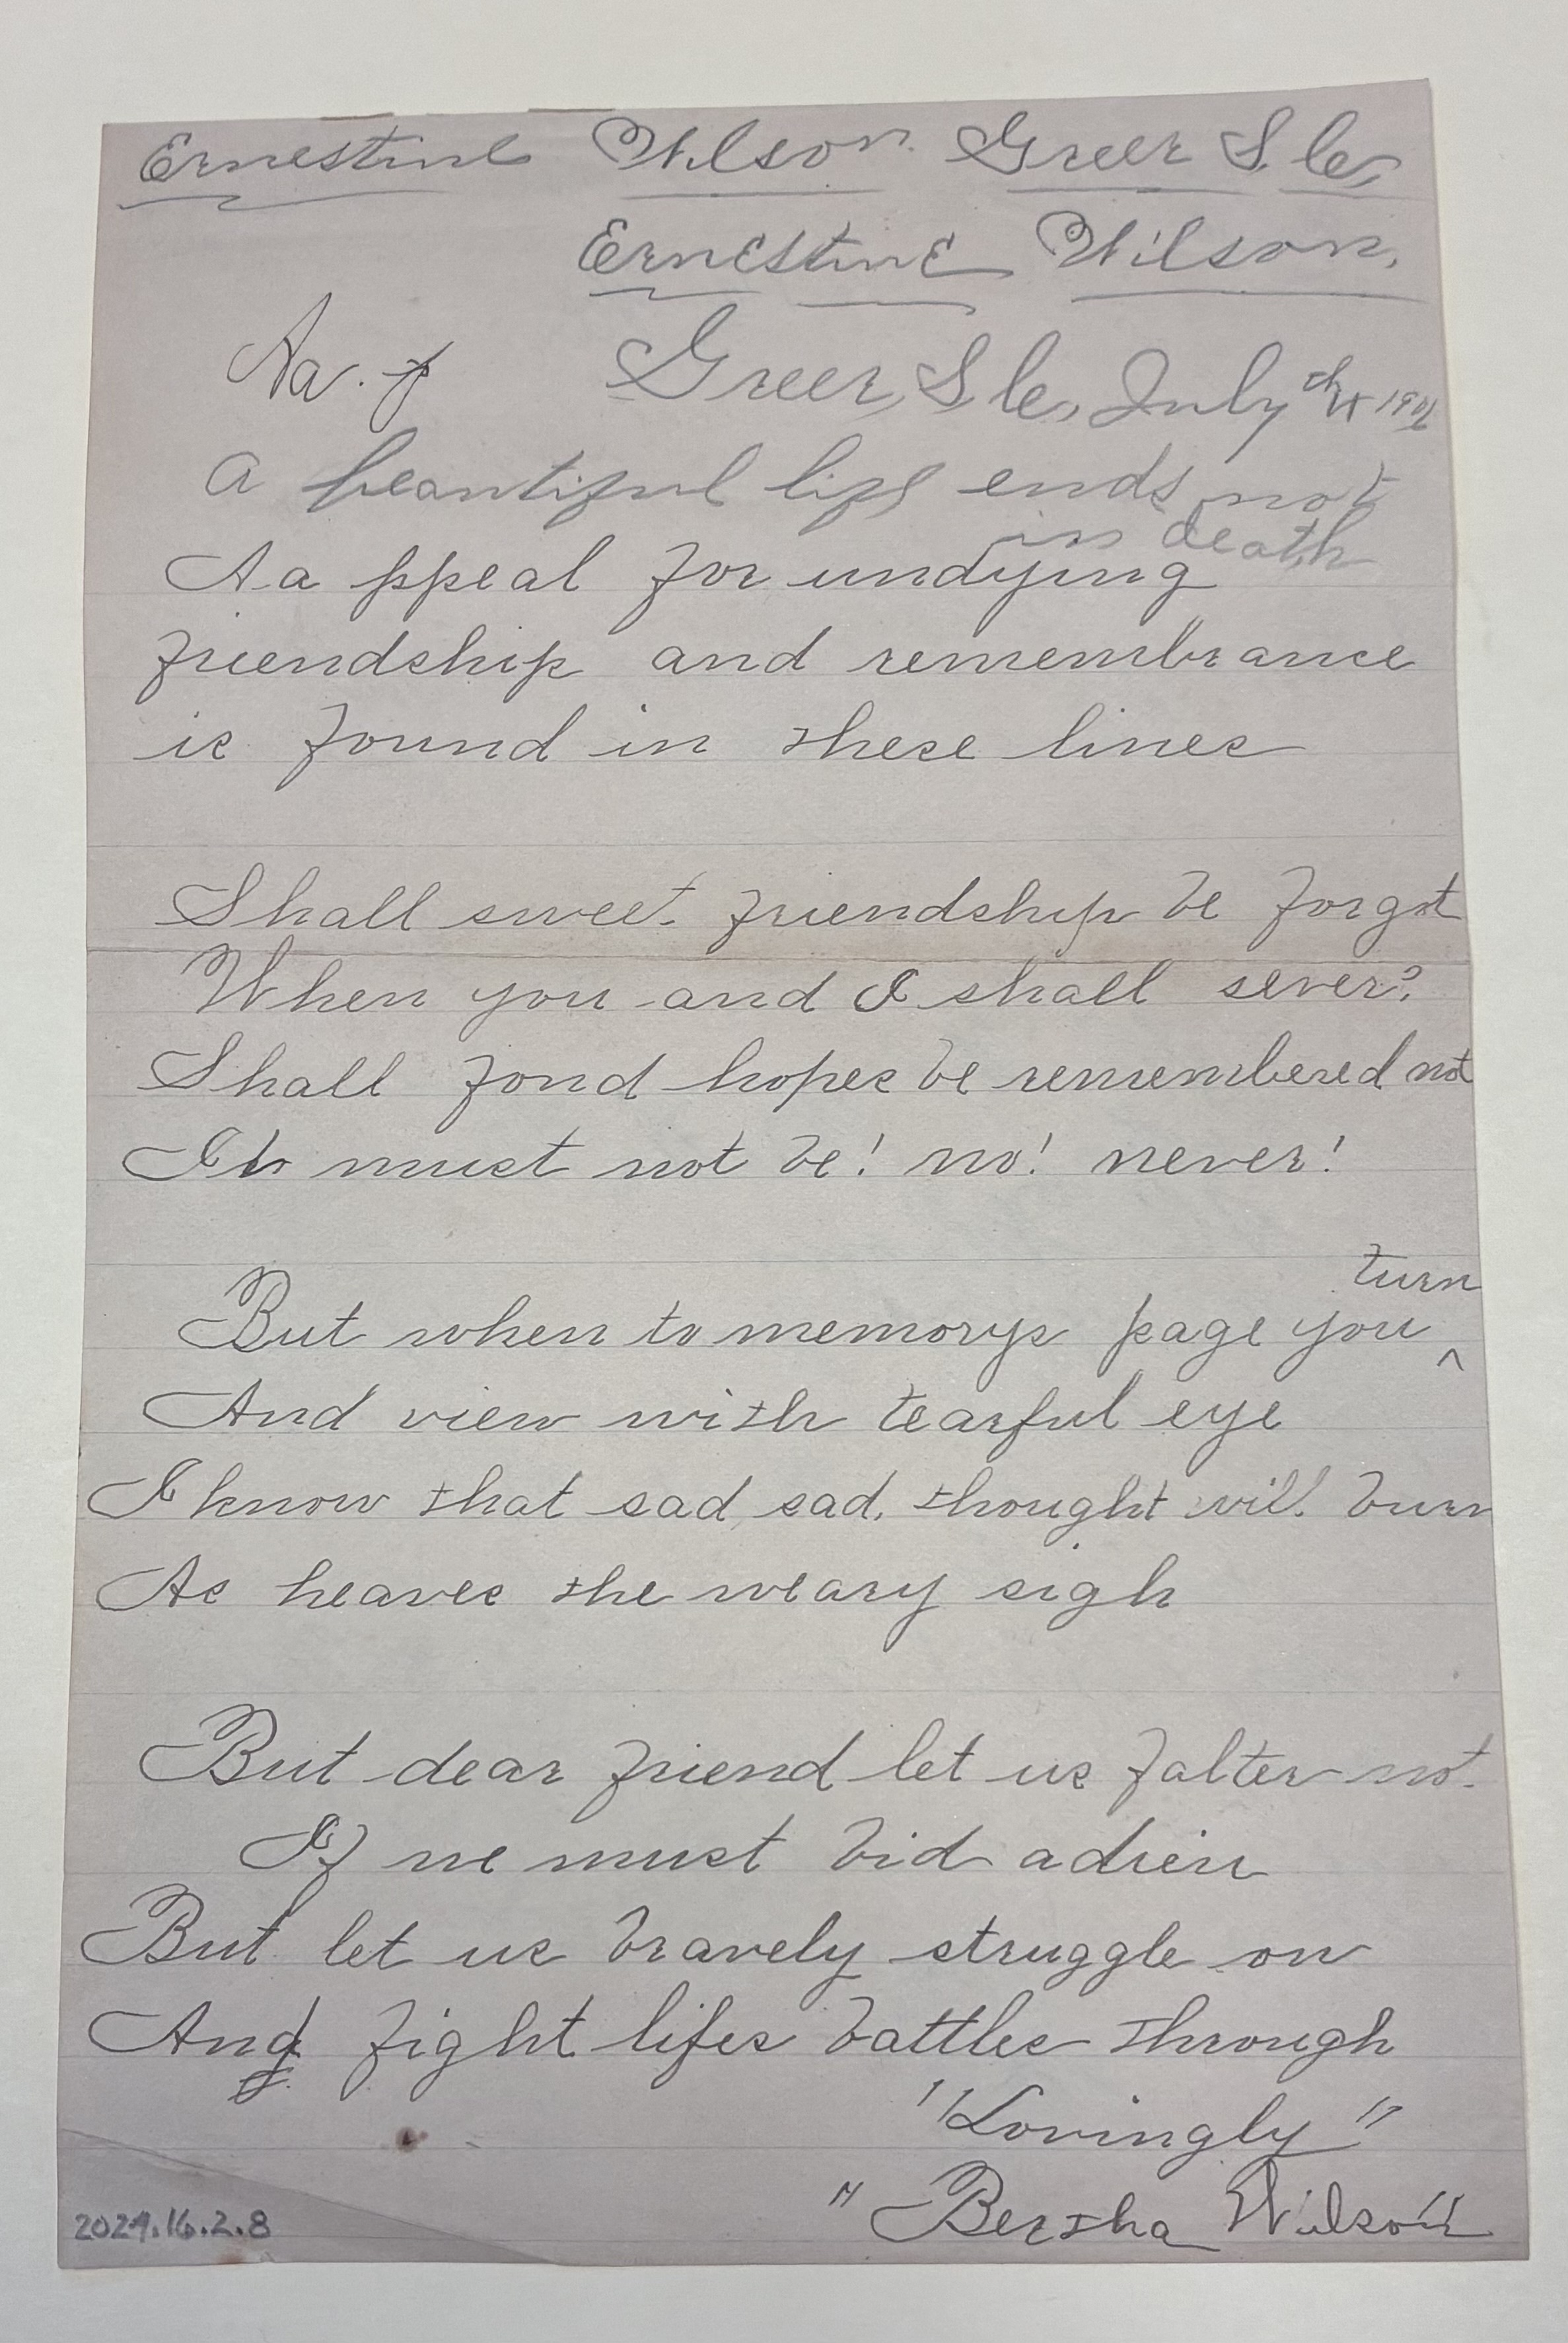 Ernestine Wilson. Greer S. C,
Ernestine Wilson.
Aa. f
Greer, S. C., July th 1901
A beautiful life ends not
in death
Aa ppeal for undying
friendship and remembrance
is found in these lines
Shall sweet friendship be forgot
When you and I shall sever?
Shall fond hopes be remembered not
It must not be! no! never!
turn
But when to memorys page you ^
And view with tearful eye
I know that sad, sad, thought will burn
As heaves the weary sigh
But dear friend let us falter not.
If we must bid adieu
But let us bravely struggle on
And fight lifes battles through
"Lovingly"
"Bertha Wilson"
2024.16.2.8